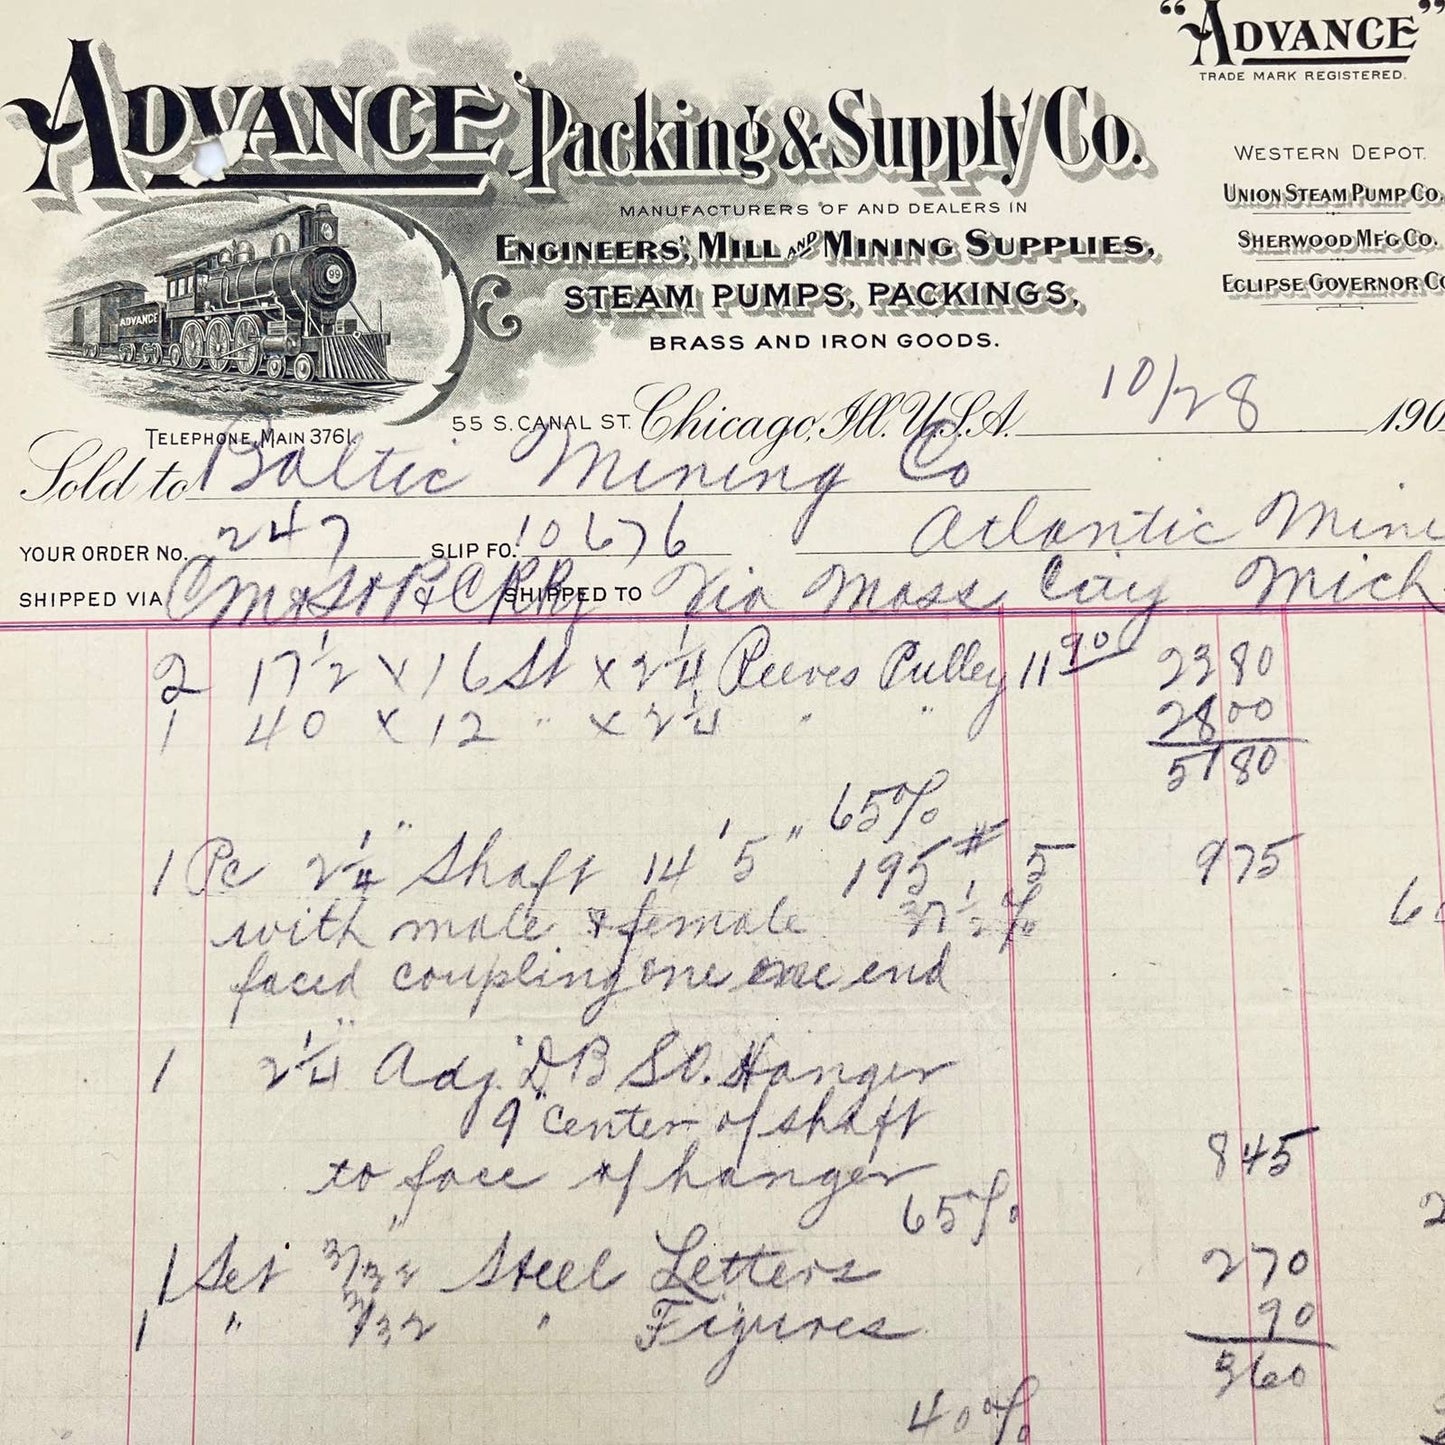 "ADVANCE"
TRADE MARK REGISTERED.
ADVANCE Packing & Supply Co.
WESTERN DEPOT.
UNION STEAM PUMP CO.
SHERWOOD MF'G CO.
ECLIPSE GOVERNOR CO
MANUFACTURERS OF AND DEALERS IN
ENGINEERS', MILL AND MINING SUPPLIES,
STEAM PUMPS, PACKINGS,
BRASS AND IRON GOODS.
99
ADVANCE
TELEPHONE, MAIN 3761.
55 S. CANAL ST. Chicago, Ill. U.S.A. 10/28 190
Sold to Baltic Mining Co
YOUR ORDER NO. 247 SLIP FO. 10676 Atlantic Mine
SHIPPED VIA CM&StP&CRRy SHIPPED TO Via Mass City Mich
2 17 1/2 x 16 St x 2 1/4 Reeves Pulley 11 90 23 80
1 40 x 12 " x 2 1/4 " " 28 00
51 80
65%
1 Pc 2 1/4" Shaft 14' 5" 195# 5 9 75
with male & female 37 1/2 %
faced coupling one one end
1 2 1/4" Adj. D B SO. Hanger
9" center of shaft
to face of hanger 8 45
65%
1 Set 3/32" Steel Letters 2 70
1 " 3/32 " Figures 90
3 60
40%